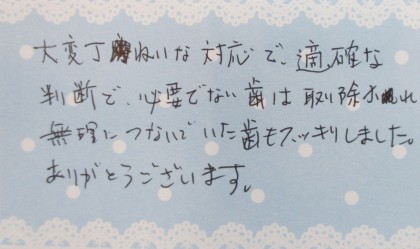 大変丁ねいな対応で、適確な
判断で、必要でない歯は取り除かれ
無理につないでいた歯もスッキリしました。
ありがとうございます。